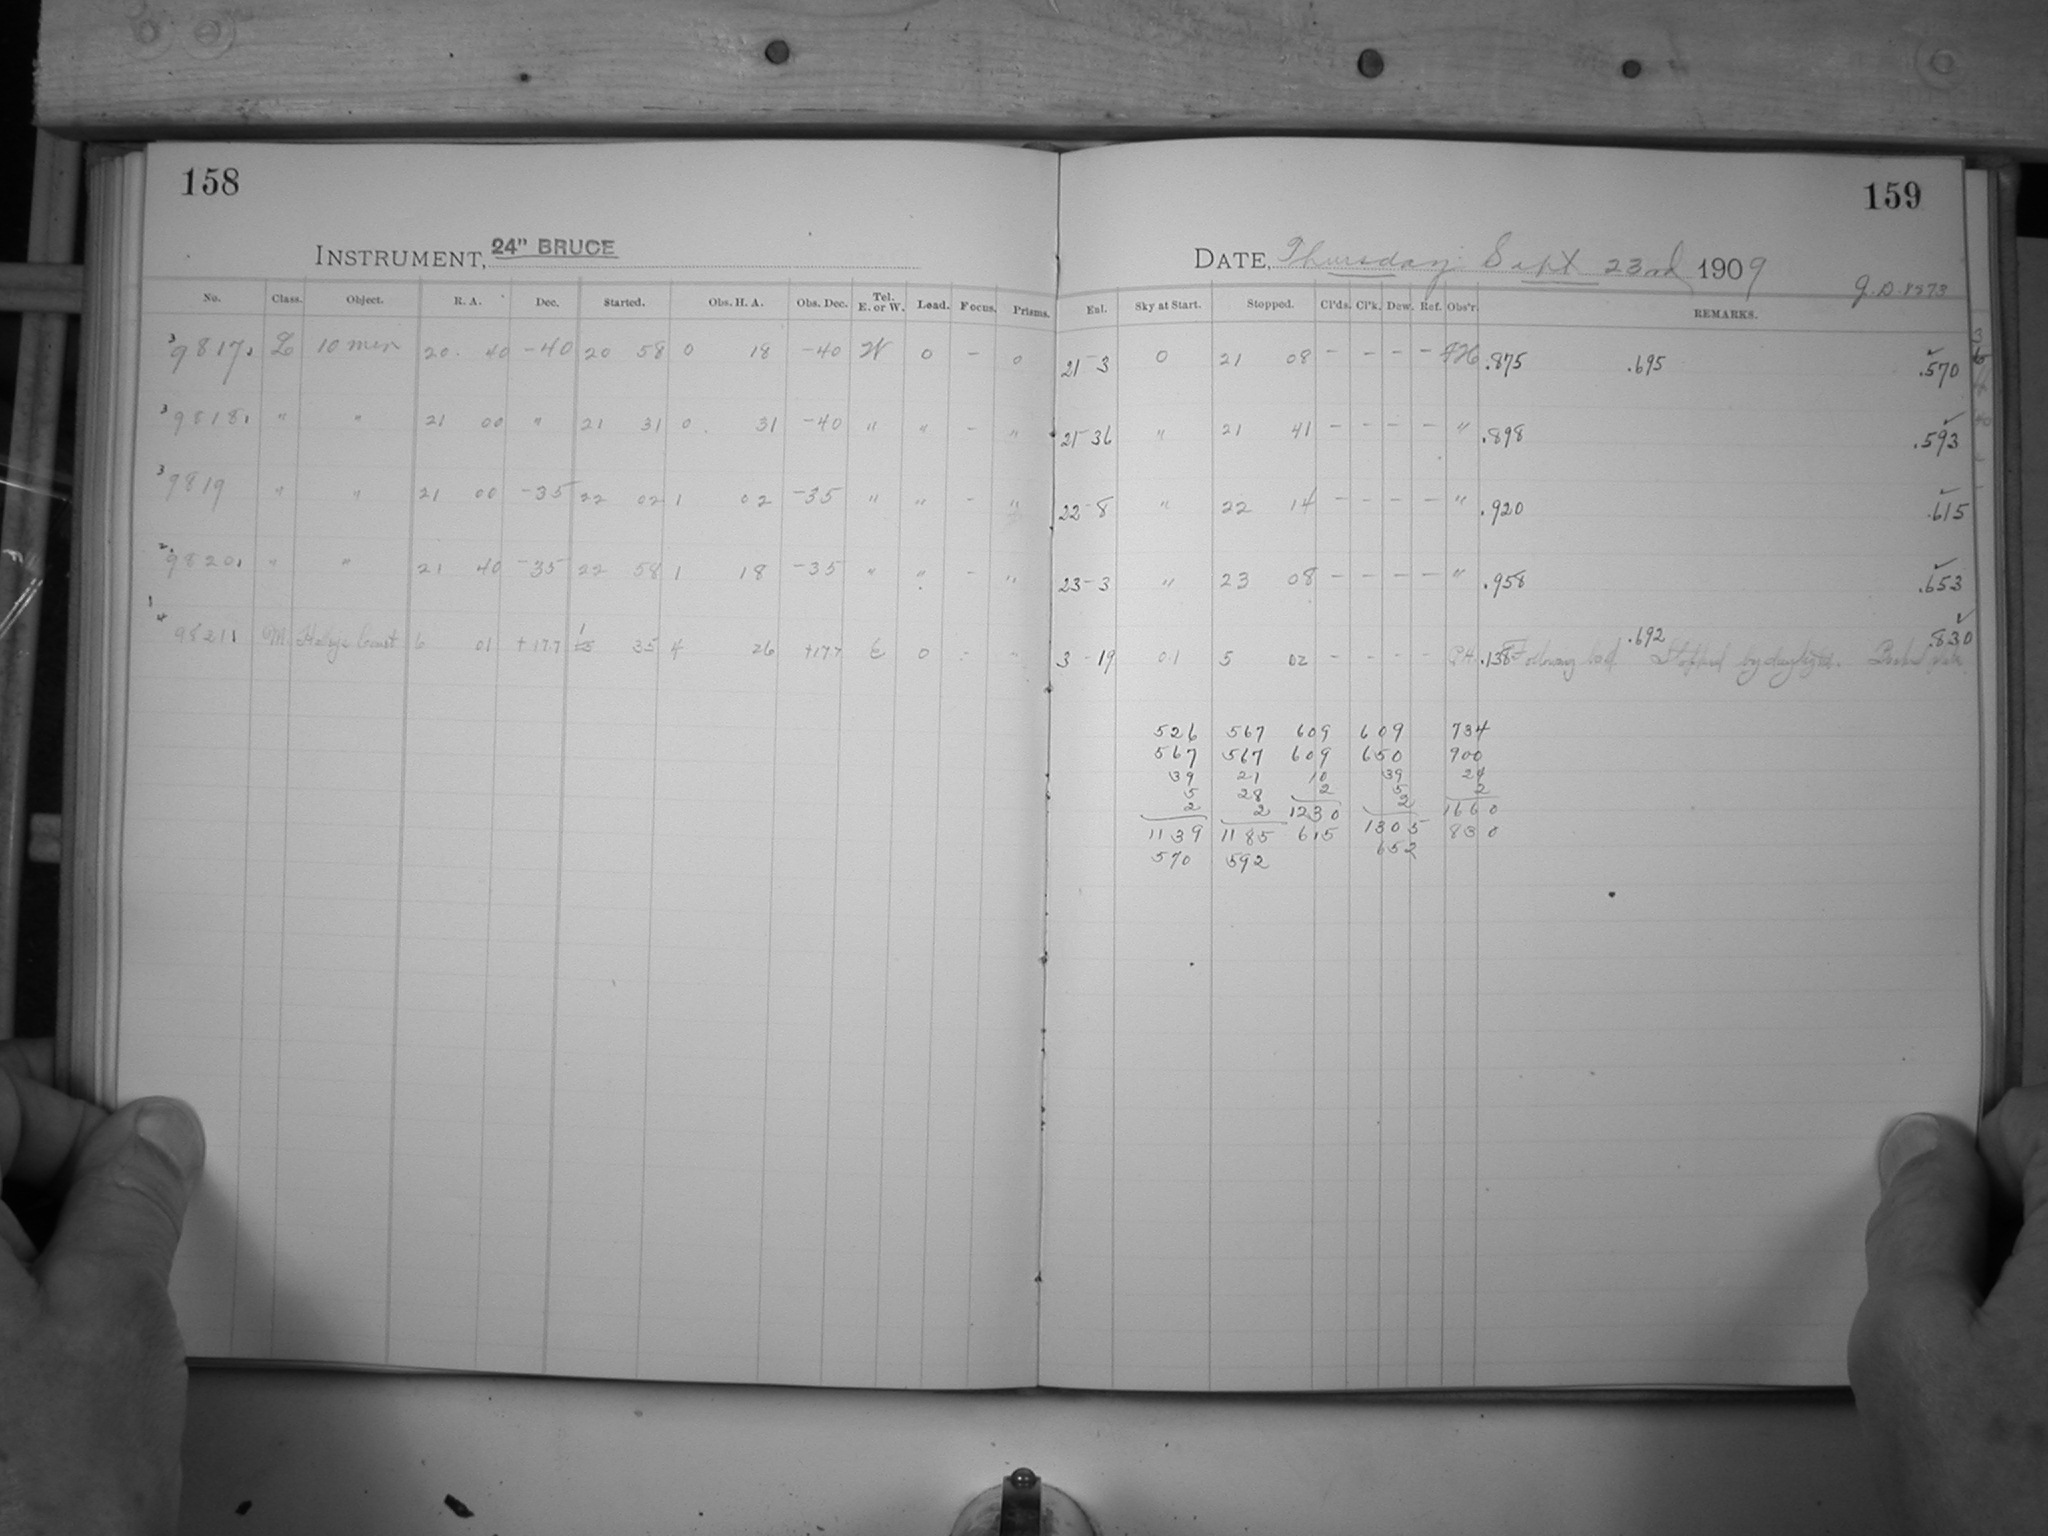 158
159
INSTRUMENT, 24" BRUCE
DATE, Thursday Sept 23rd 1909
J.D. 8573
No. Class. Object. R. A. Dec. Started. Obs. H. A. Obs. Dec. Tel. E. or W. Lead. Focus. Prisms. Eul. Sky at Start. Stopped. Cl'ds. Cl'k. Dew. Ref. Obs'r. REMARKS.
3 9817 L 10 min 20 40 -40 20 58 0 18 -40 W 0 - 0 21-3 0 21 08 - - - - .875 .695 .570
3 9818 " " 21 00 " 21 31 0 31 -40 " " - " 21-36 " 21 41 - - - - " .898 .593
3 9819 " " 21 00 -35 22 02 1 02 -35 " " - " 22-8 " 22 14 - - - - " .920 .615
2 9820 " " 21 40 -35 22 58 1 18 -35 " " - " 23-3 " 23 08 - - - - " .958 .653
9821 M 6 01 +17.7 1 35 4 26 +17.7 E 0 - " 3-19 0.1 5 02 - - - - .138 Following bad .692 Stopped by daylight. .830
526 567 609 609 734
567 567 609 650 900
39 21 10 39 24
5 28 2 5 2
2 2 1230 2 1660
1139 1185 615 1305 830
570 592 652